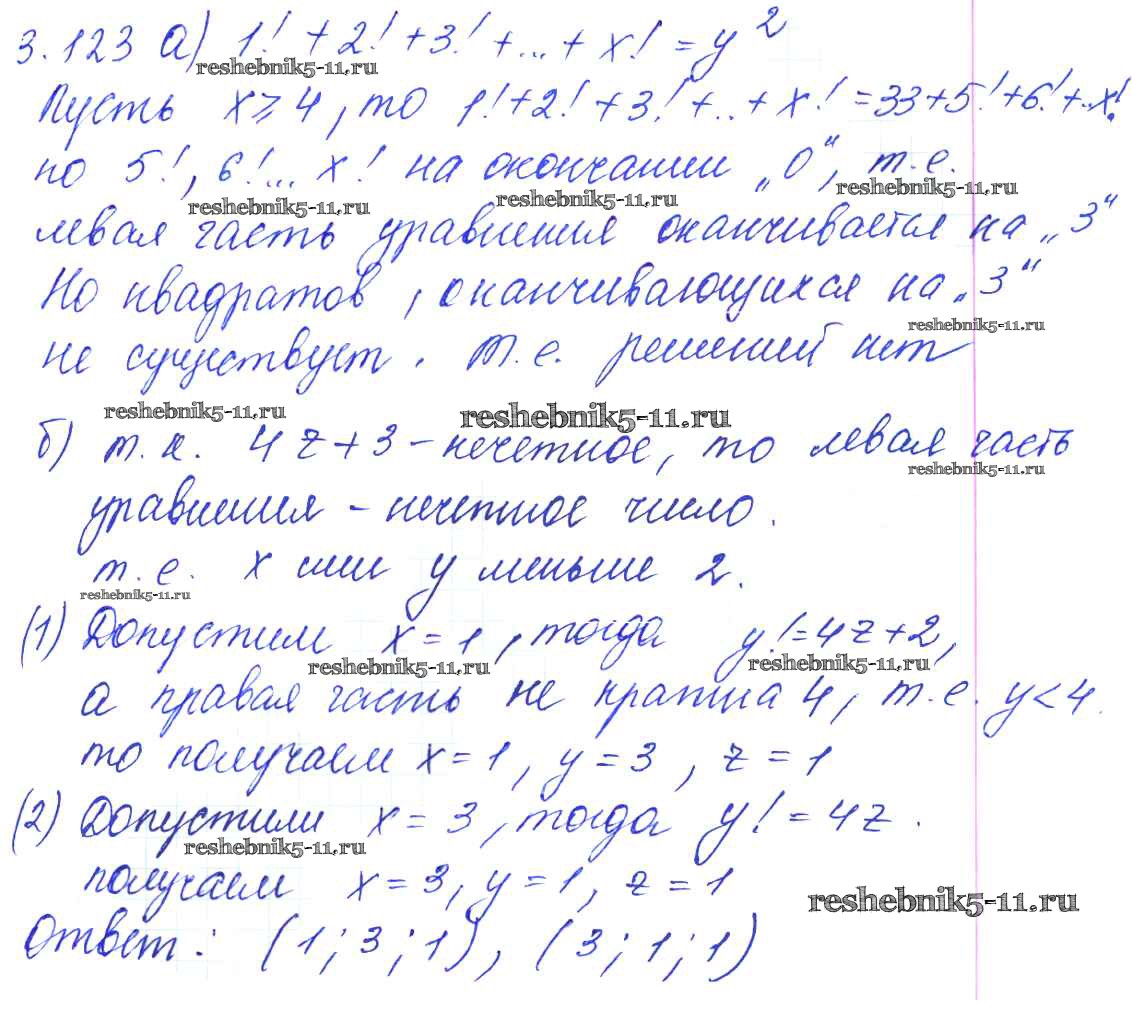 3.123 а) 1! + 2! + 3! + ... + x! = y²
reshebnik5-11.ru
Пусть x ≥ 4, то 1! + 2! + 3! + .. + x! = 33 + 5! + 6! + ..x!
но 5!, 6!... x! на окончании „0", т.е.
reshebnik5-11.ru reshebnik5-11.ru reshebnik5-11.ru
левая часть уравнения оканчивается на „3"
Но квадратов, оканчивающихся на „3"
reshebnik5-11.ru
не существует. т.е. решений нет
reshebnik5-11.ru reshebnik5-11.ru
б) т.к. 4z + 3 - нечетное, то левая часть
reshebnik5-11.ru
уравнения - нечетное число.
т.е. x или y меньше 2.
reshebnik5-11.ru
(1) Допустим x = 1, тогда y! = 4z + 2,
reshebnik5-11.ru reshebnik5-11.ru
а правая часть не кратна 4, т.е. y < 4.
то получаем x = 1, y = 3, z = 1
(2) Допустили x = 3, тогда y! = 4z.
reshebnik5-11.ru
получаем x = 3, y = 1, z = 1
reshebnik5-11.ru
Ответ: (1; 3; 1), (3; 1; 1)